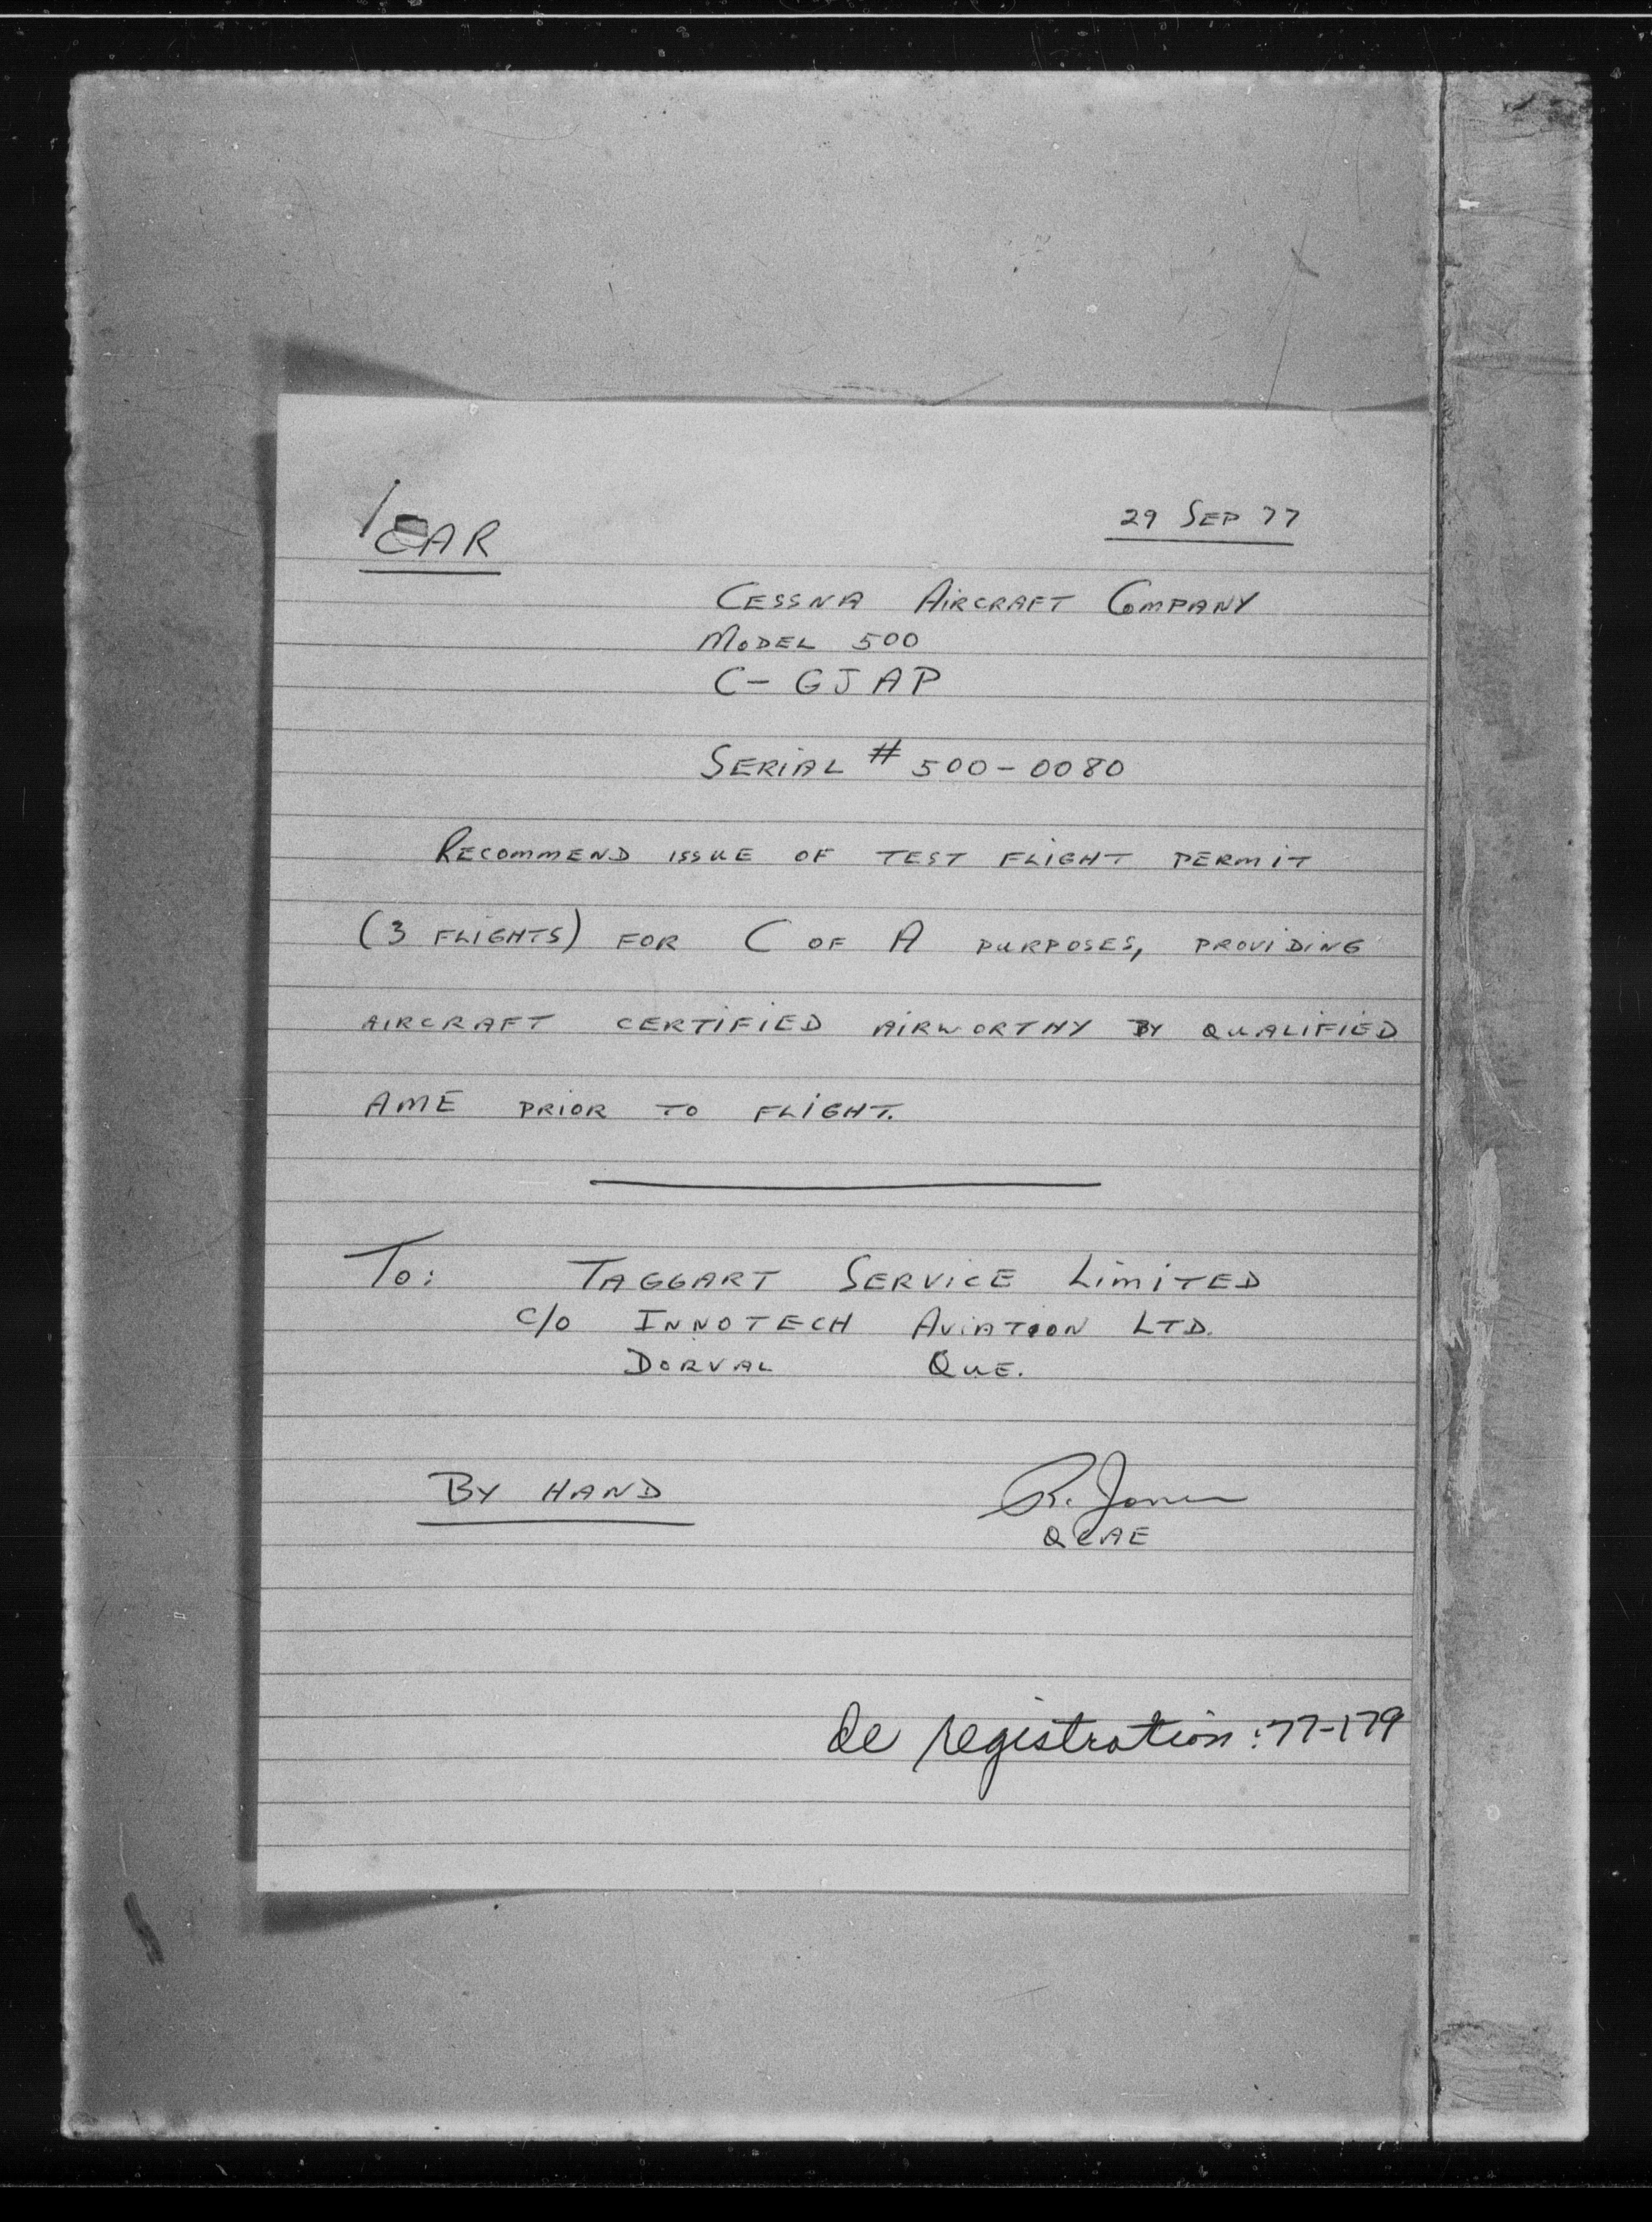 29 SEP 77
CAR
CESSNA AIRCRAFT COMPANY
MODEL 500
C-GJAP
SERIAL # 500-0080
RECOMMEND ISSUE OF TEST FLIGHT PERMIT
(3 FLIGHTS) FOR C OF A PURPOSES, PROVIDING
AIRCRAFT CERTIFIED AIRWORTHY BY QUALIFIED
AME PRIOR TO FLIGHT.
TO: TAGGART SERVICE LIMITED
C/O INNOTECH AVIATION LTD.
DORVAL QUE.
BY HAND
R. Jones
QCAE
de registration: 77-179